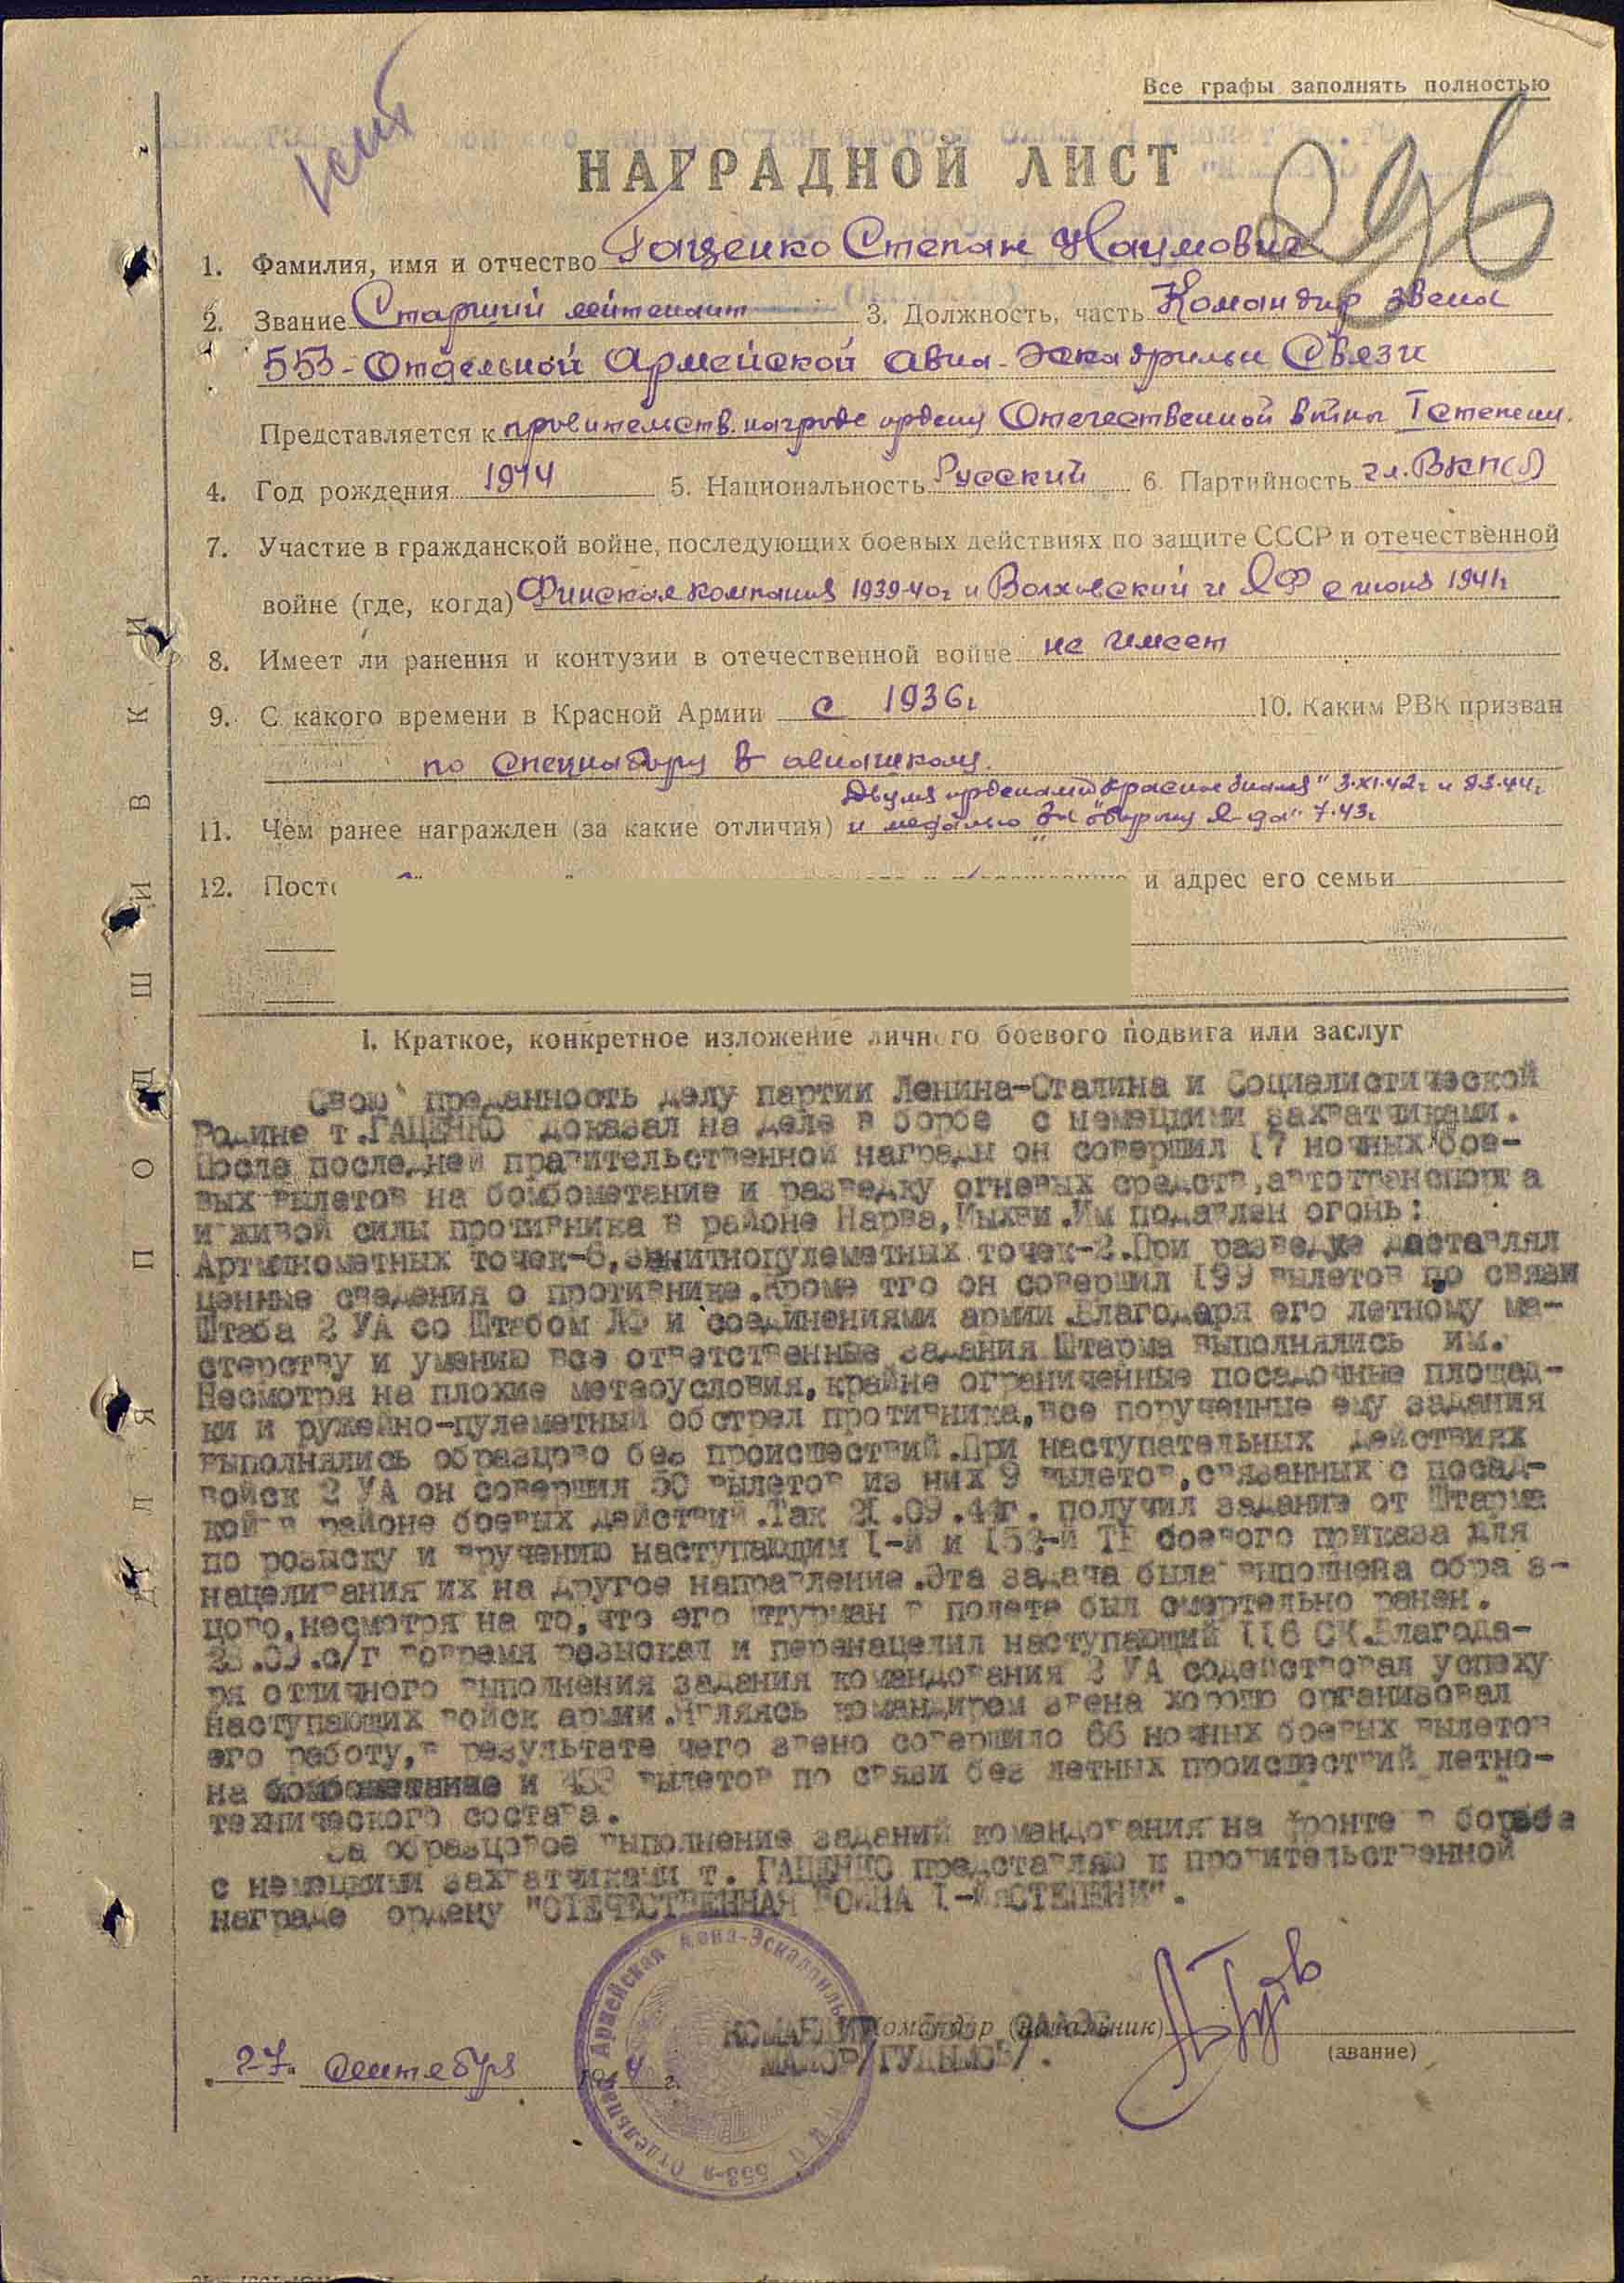 Все графы заполнять полностью
НАГРАДНОЙ ЛИСТ
296
1. Фамилия, имя и отчество Гащенко Степан Наумович
2. Звание Старший лейтенант 3. Должность, часть Командир звена
553-Отдельной Армейской Авиа-Эскадрильи Связи
Представляется к правительств. награде ордену Отечественной войны I степени.
4. Год рождения 1914 5. Национальность Русский 6. Партийность чл. ВКП(б)
7. Участие в гражданской войне, последующих боевых действиях по защите СССР и отечественной
войне (где, когда) Финская компания 1939-40г и Волховский и ЛФ с июня 1941г
8. Имеет ли ранения и контузии в отечественной войне не имеет
9. С какого времени в Красной Армии с 1936г 10. Каким РВК призван
по спецнабору в авиашколу.
Двумя орденами "Красное Знамя" 3.XI.42г и 8.3.44г
11. Чем ранее награжден (за какие отличия) и медалью За "оборону Л-да" 7.43г
12. и адрес его семьи
ДЛЯ ПОДШИВКИ
1. Краткое, конкретное изложение личного боевого подвига или заслуг
Свою преданность делу партии Ленина-Сталина и Социалистической
Родине т.ГАЩЕНКО доказал на деле в борбе с немецкими захватчиками.
После последней правительственной награды он совершил 17 ночных бое-
вых вылетов на бомбометание и разведку огневых средств,автотранспорта
и живой силы противника в районе Нарва,Иыхви.Им подавлен огонь:
Артминометных точек-6,зенитнопулеметных точек-2.При разведке доставлял
ценные сведения о противнике.Кроме тго он совершил 199 вылетов по связи
Штаба 2 УА со Штабом ЛФ и соединениями армии.Благодаря его летному ма-
стерству и умению все ответственные задания Штарма выполнялись им.
Несмотря на плохие метеоусловия,крайне ограниченные посадочные площад-
ки и ружейно-пулеметный обстрел противника,все порученные ему задания
выполнялись образцово без происшествий.При наступательных действиях
войск 2 УА он совершил 50 вылетов из них 9 вылетов,связанных с посад-
кой в районе боевых действий.Так 21.09.44г. получил задание от Штарма
по розыску и вручению наступающим 1-й и 152-й ТБ боевого приказа для
нацеливания их на другое направление.Эта задача была выполнена образ-
цого,несмотря на то,что его штурман в полете был смертельно ранен.
23.09.с/г вовремя розыскал и перенацелил наступающий 116 СК.Благода-
ря отличного выполнения задания командования 2 УА содействовал успеху
наступающих войск армии.Являясь командиром звена хорошо организовал
его работу,в результате чего звено совершило 66 ночных боевых вылетов
на бомбометание и 433 вылетов по связи без летных происшествий летно-
технического состава.
За образцовое выполнение заданий командования на фронте в борьбе
с немецкими захватчиками т. ГАЩЕНКО представляю к правительственной
награде ордену "ОТЕЧЕСТВЕННАЯ ВОЙНА 1-Й СТЕПЕНИ".
КОМАНДИР Командир (начальник)
МАЙОР /ГУДИМОВ/.
(звание)
"27" сентября 1944 г.
553-я Отдельная Армейская Авиа-Эскадрилья